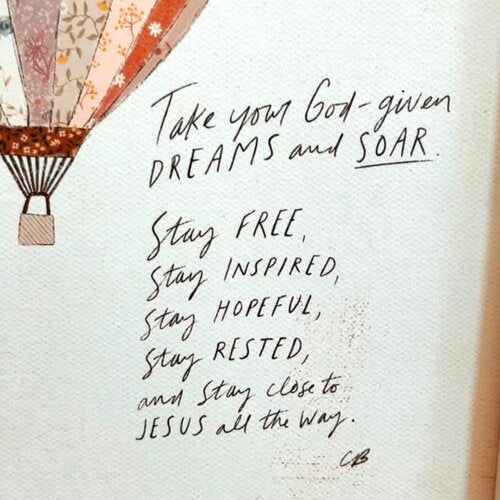 Take your God-given
DREAMS and SOAR.
Stay FREE,
Stay INSPIRED,
Stay HOPEFUL,
Stay RESTED,
and stay close to
JESUS all the way.
CB